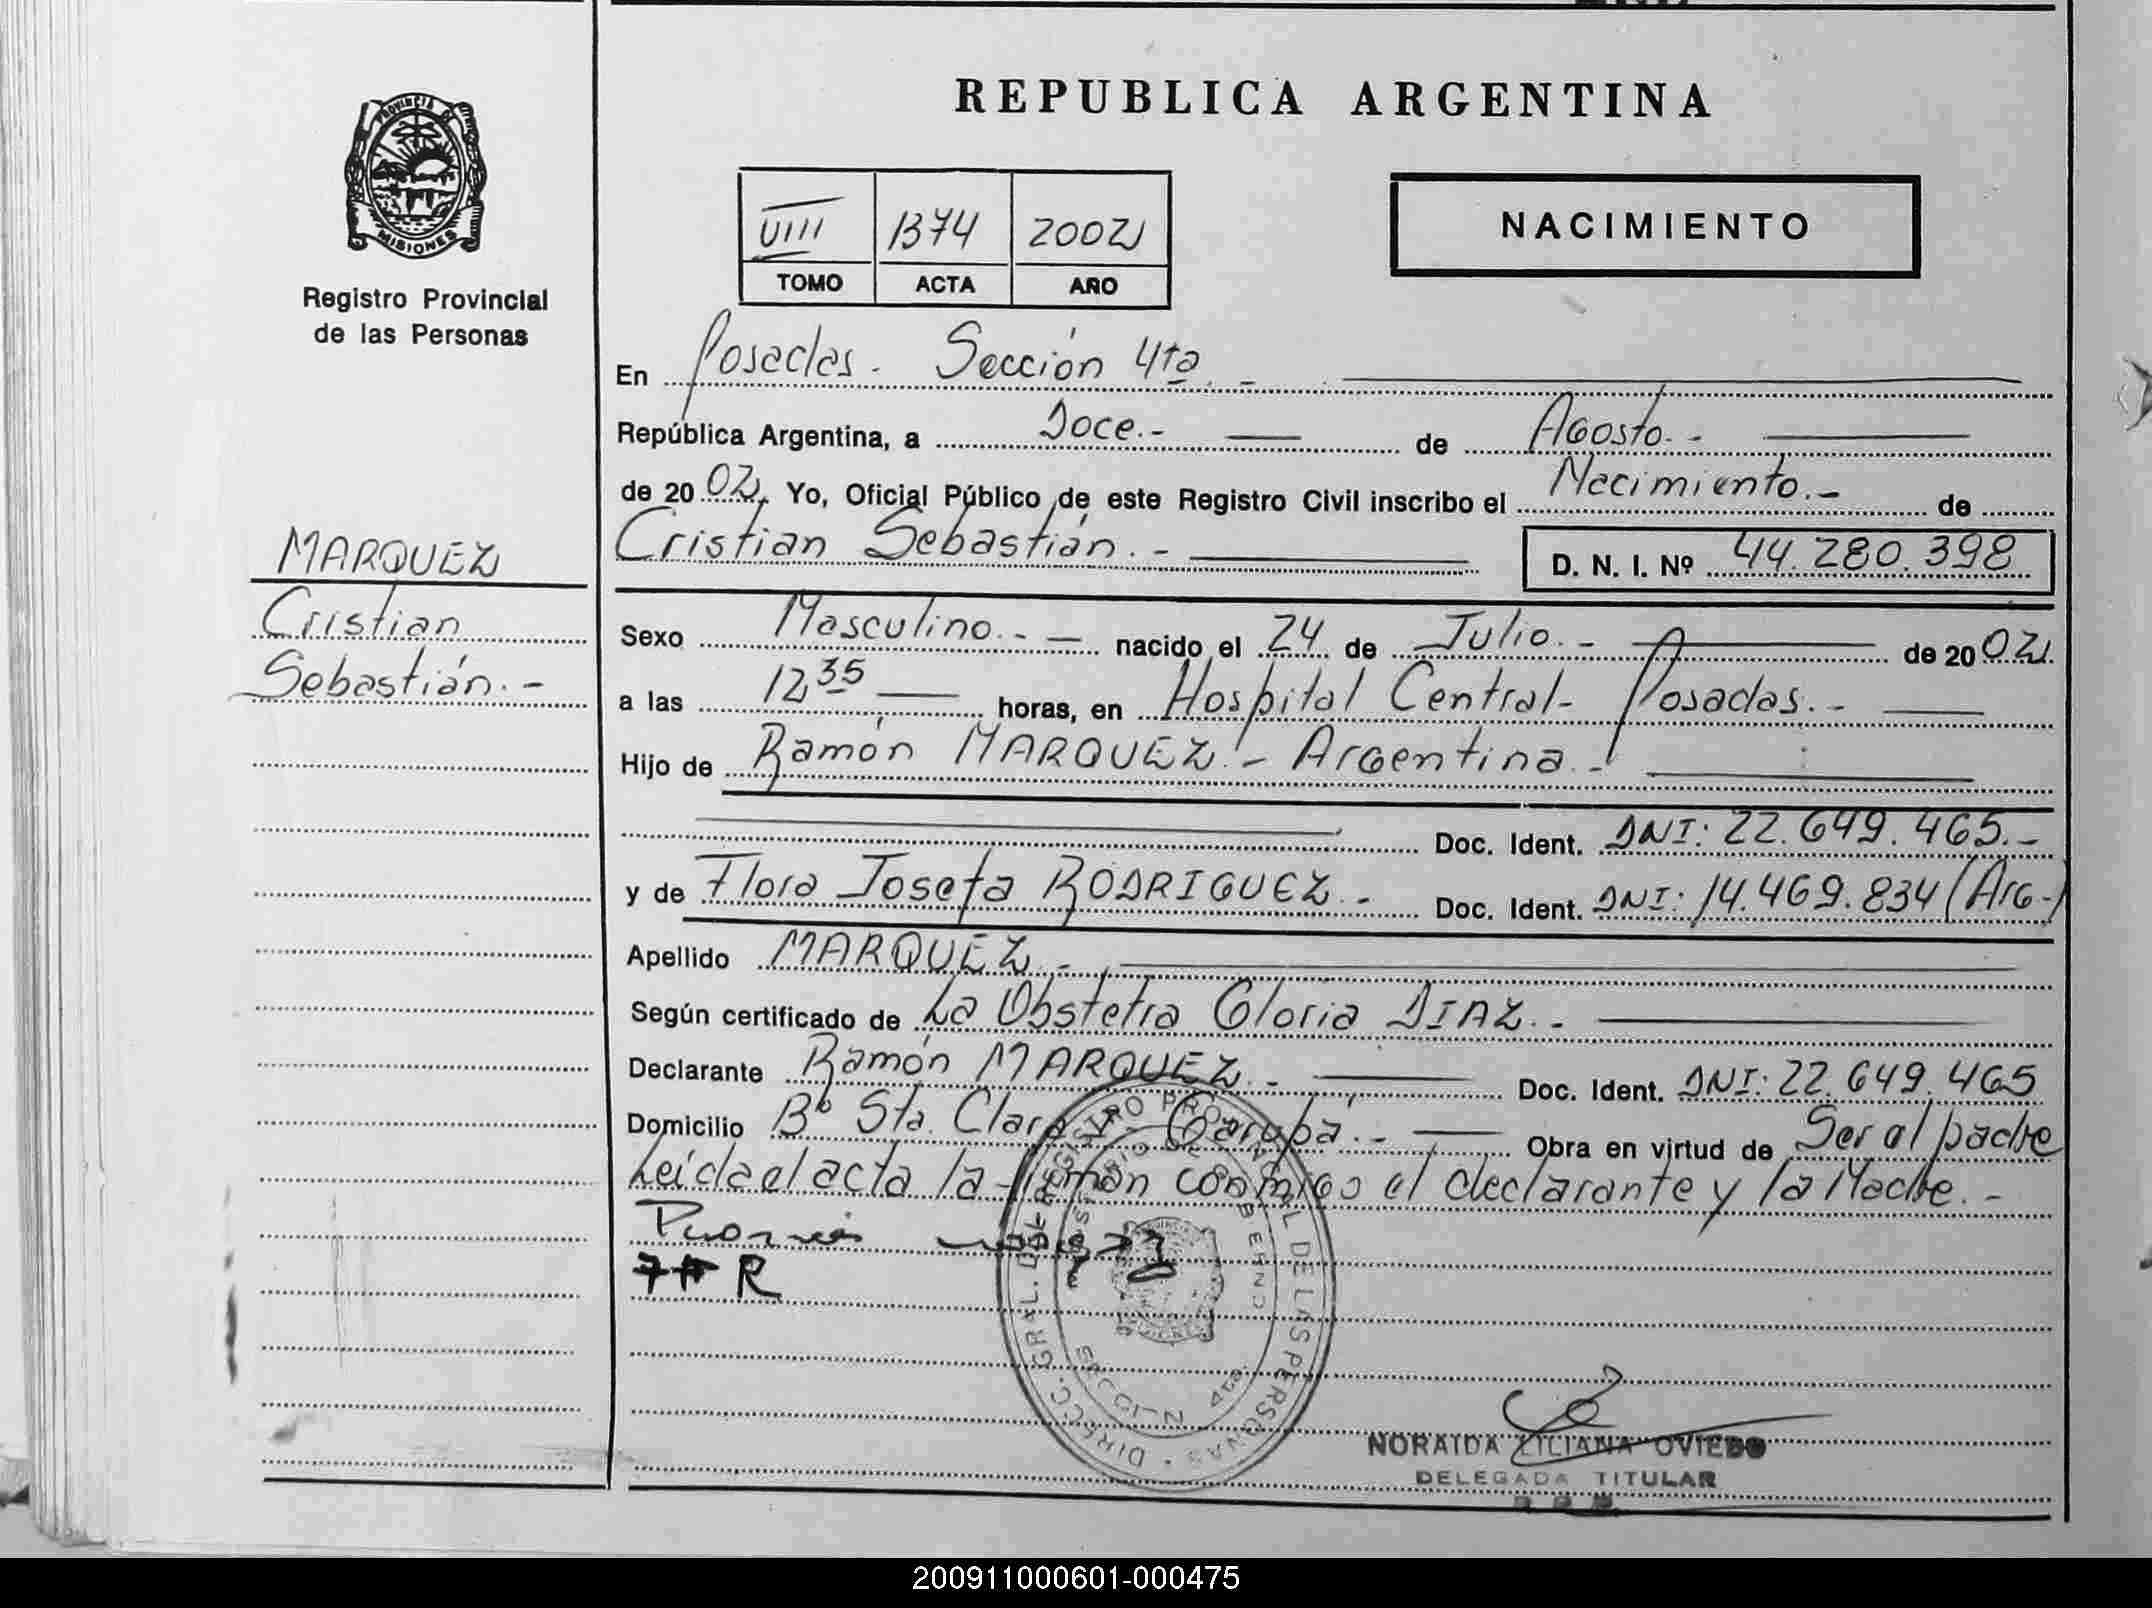 REPUBLICA ARGENTINA
PROVINCIA DE
MISIONES
Registro Provincial
de las Personas
VIII 1374 2002
TOMO ACTA AÑO
NACIMIENTO
En Posadas. Sección 4ta. -
República Argentina, a Doce.- de Agosto.-
de 2002, Yo, Oficial Público de este Registro Civil inscribo el Nacimiento.- de
Cristian Sebastián.- D. N. I. Nº 44.280.398
MARQUEZ
Cristian
Sebastián.-
Sexo Masculino.- nacido el 24 de Julio.- de 2002.
a las 12 35 horas, en Hospital Central- Posadas.-
Hijo de Ramón MARQUEZ.- Argentina.-
Doc. Ident. DNI: 22.649.465.-
y de Flora Josefa RODRIGUEZ.- Doc. Ident. DNI: 14.469.834 (Arg.-)
Apellido MARQUEZ.-
Según certificado de La Obstetra Gloria DIAZ.-
Declarante Ramón MARQUEZ.- Doc. Ident. DNI: 22.649.465
Domicilio Bº Sta. Clara Garupá.- Obra en virtud de Ser al padre
Leída el acta la firman conmigo el declarante y la Madre.-
DIRECC. GRAL. DEL REGISTRO PROVINCIAL DE LAS PERSONAS
NORAIDA LILIANA OVIEDO
DELEGADA TITULAR
200911000601-000475